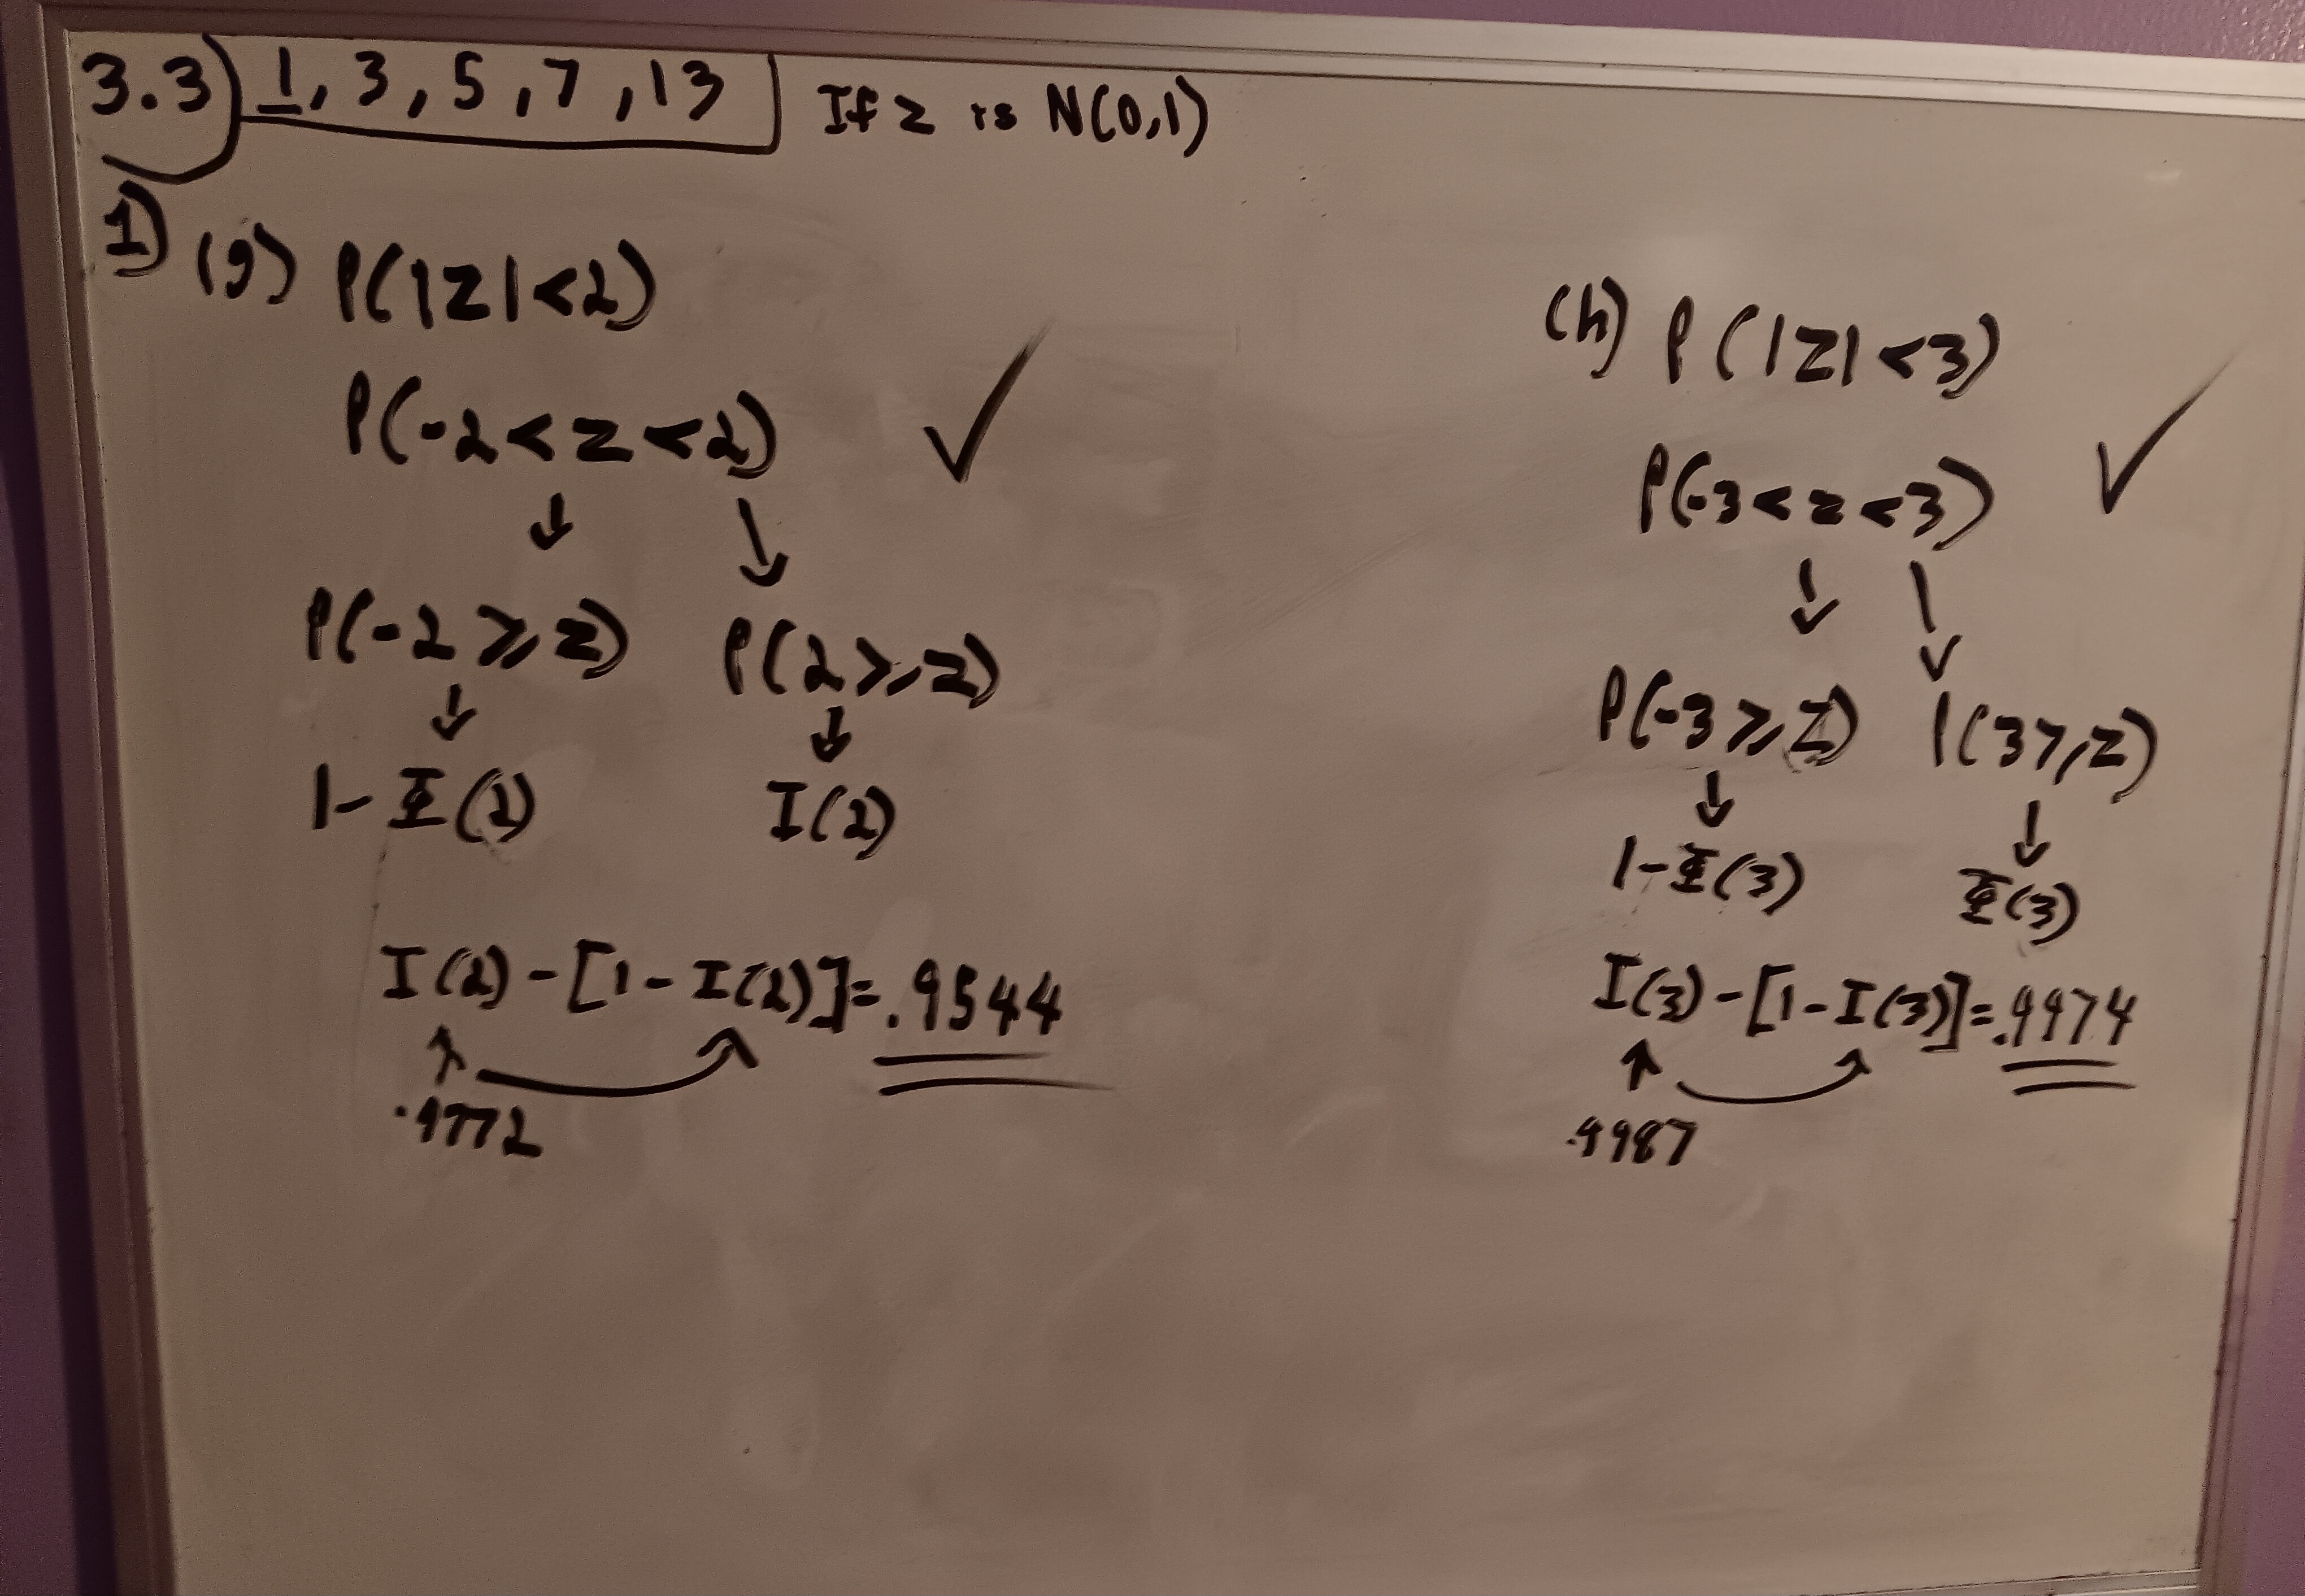 3.3) 1, 3, 5, 7, 13 If z is N(0,1)
1) (g) P(|Z|<2)
P(-2<z<2) ✓
↓ ↓
P(-2≥z) P(2≥z)
↓ ↓
1-Φ(2) I(2)
I(2)-[1-I(2)]=.9544
.9772
(h) P(|Z|<3)
P(-3<z<3) ✓
↓ ↓
P(-3≥Z) P(3≥z)
↓ ↓
1-Φ(3) Φ(3)
I(3)-[1-I(3)]=.9974
.9987